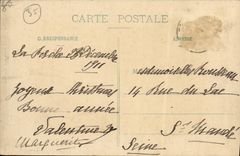 35
CARTE POSTALE
CORRESPONDANCE
ADRESSE
Décembre
1911
Joyeux Christmas
Bonne année
Valentine
Marguerite
Mademoiselle
14 Rue du Lac
St Mandé
Seine